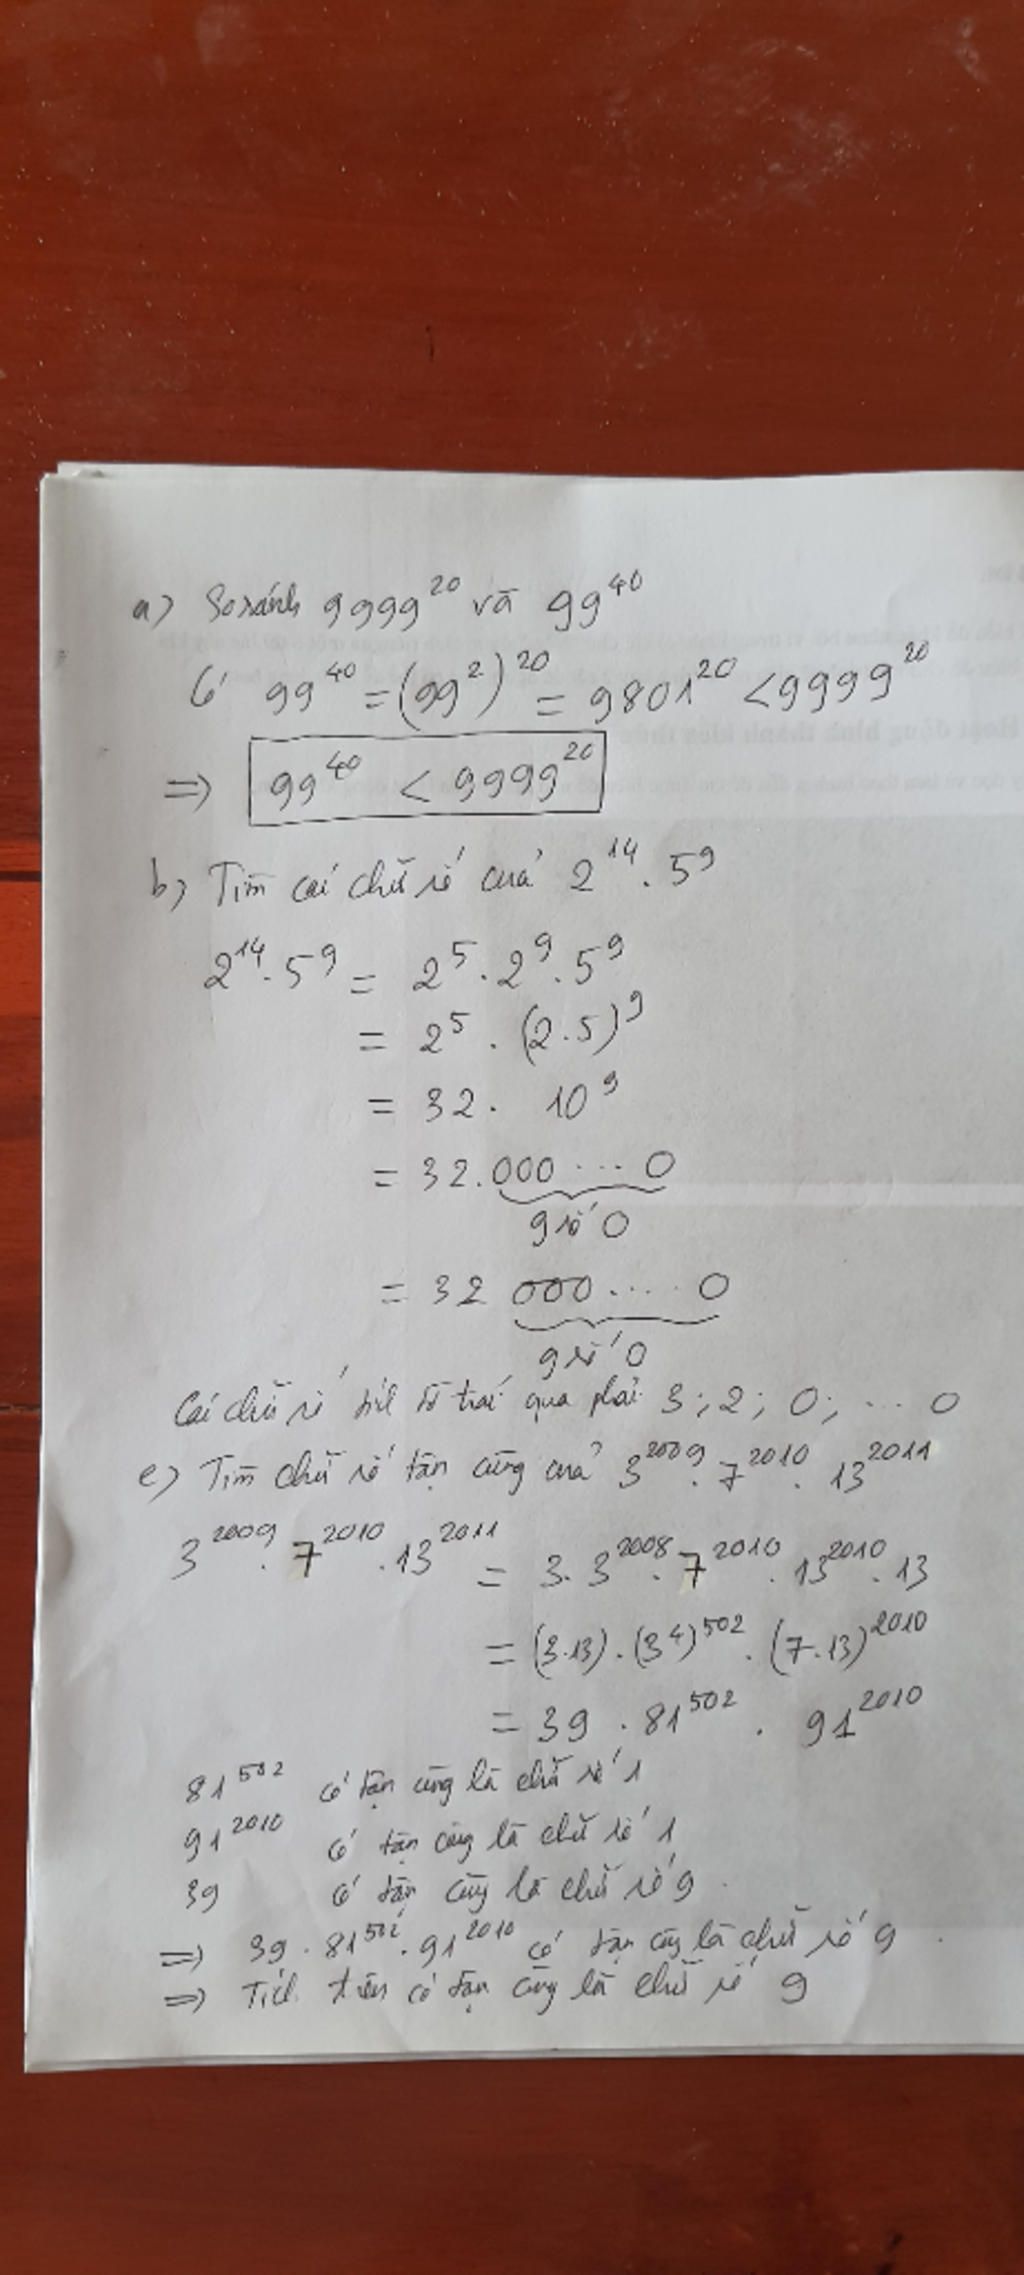 a) So sánh 9999^20 và 99^40
Có 99^40 = (99^2)^20 = 9801^20 < 9999^20
=> 99^40 < 9999^20
b) Tìm các chữ số của 2^14 . 5^9
2^14 . 5^9 = 2^5 . 2^9 . 5^9
= 2^5 . (2.5)^9
= 32 . 10^9
= 32.000 ... 0
9 số 0
= 32 000 .... 0
9 số 0
Các chữ số từ trái qua phải 3 ; 2 ; 0 ; ... 0
c) Tìm chữ số tận cùng của 3^2009 . 7^2010 . 13^2011
3^2009 . 7^2010 . 13^2011 = 3 . 3^2008 . 7^2010 . 13^2010 . 13
= (3.13) . (3^4)^502 . (7.13)^2010
= 39 . 81^502 . 91^2010
81^502 có tận cùng là chữ số 1
91^2010 có tận cùng là chữ số 1
39 có tận cùng là chữ số 9
=> 39 . 81^502 . 91^2010 có tận cùng là chữ số 9
=> Tích trên có tận cùng là chữ số 9